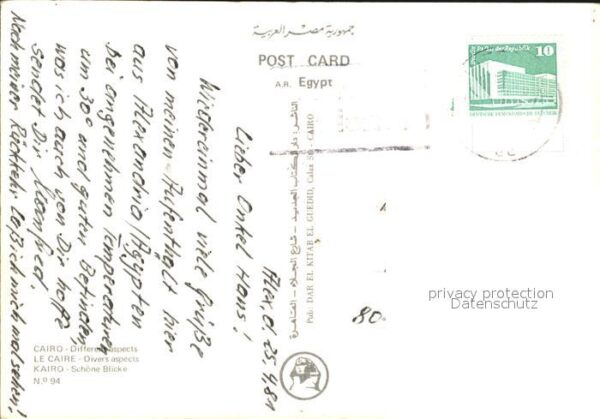 جمهورية مصر العربية
POST CARD
A.R. Egypt
Berlin, Palast der Republik
10
DEUTSCHE DEMOKRATISCHE REPUBLIK
Alex, d. 25.4.81
Lieber Onkel Hans!
Wiedereinmal viele Grüße
von meinen Aufenthalt hier
aus Alexandria/Ägypten
Bei angenehmen Temperaturen
um 30° und guten Befinden
was ich auch von Dir hoffe
sendet Dir Manfred.
Nach meiner Rückkehr laß ich mich mal sehen!
الناشر: دار الكتاب الجديد - شارع الجلاء - القاهرة
Pub: DAR EL KITAB EL GUEDID, Galaa Str. CAIRO
80.-
privacy protection
Datenschutz
CAIRO - Different aspects
LE CAIRE - Divers aspects
KAIRO - Schöne Blicke
N.º 94